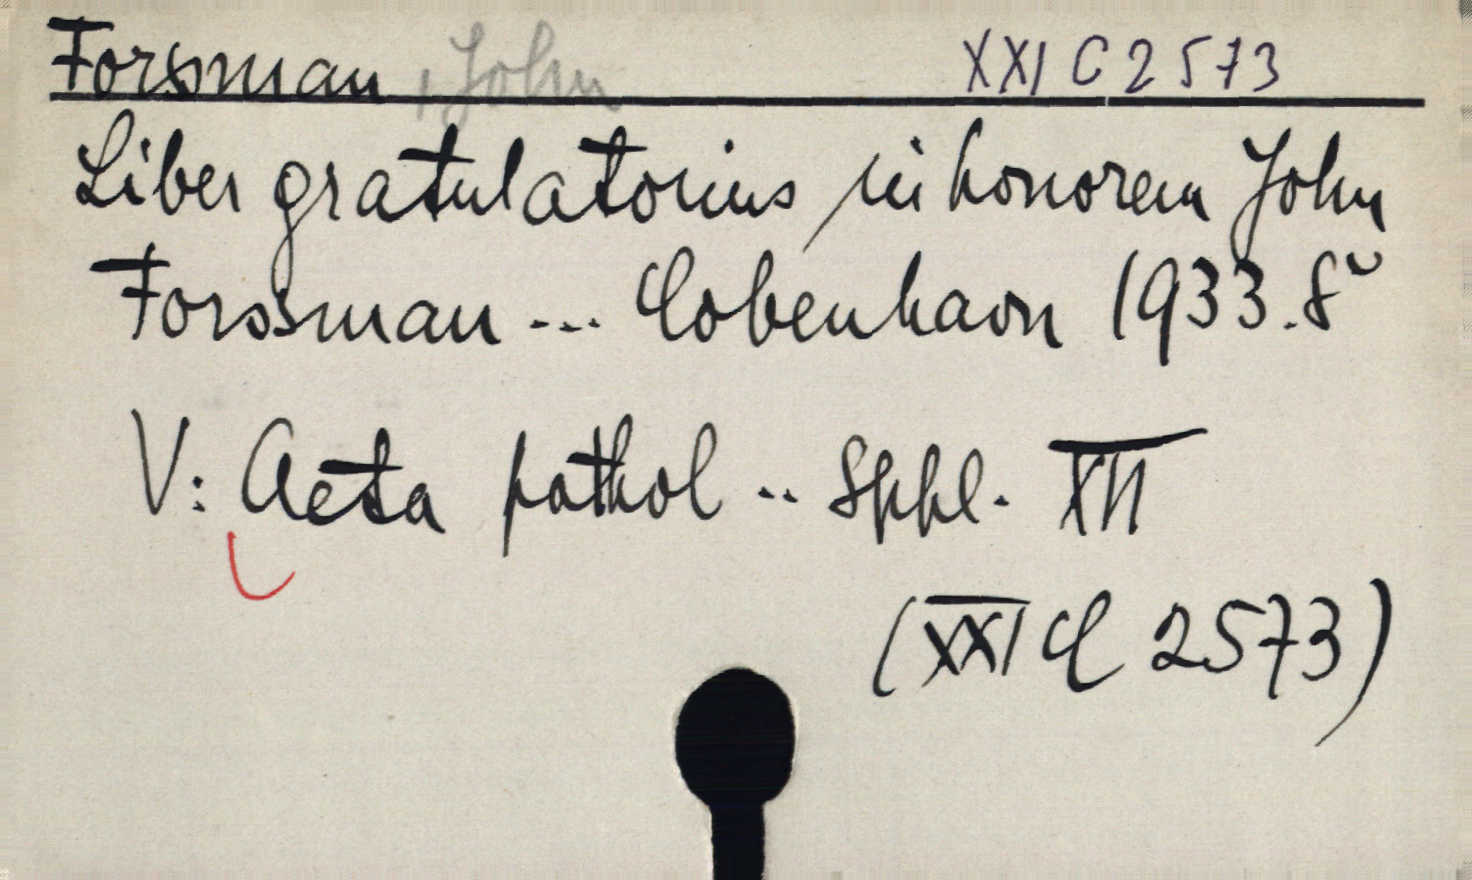 Forssman, John XXI C 2573
Liber gratulatorius in honorem John
Forssman ... Cobenhavn 1933. 8°
V: Acta pathol .. Sppl. XVI
(XXI C 2573)